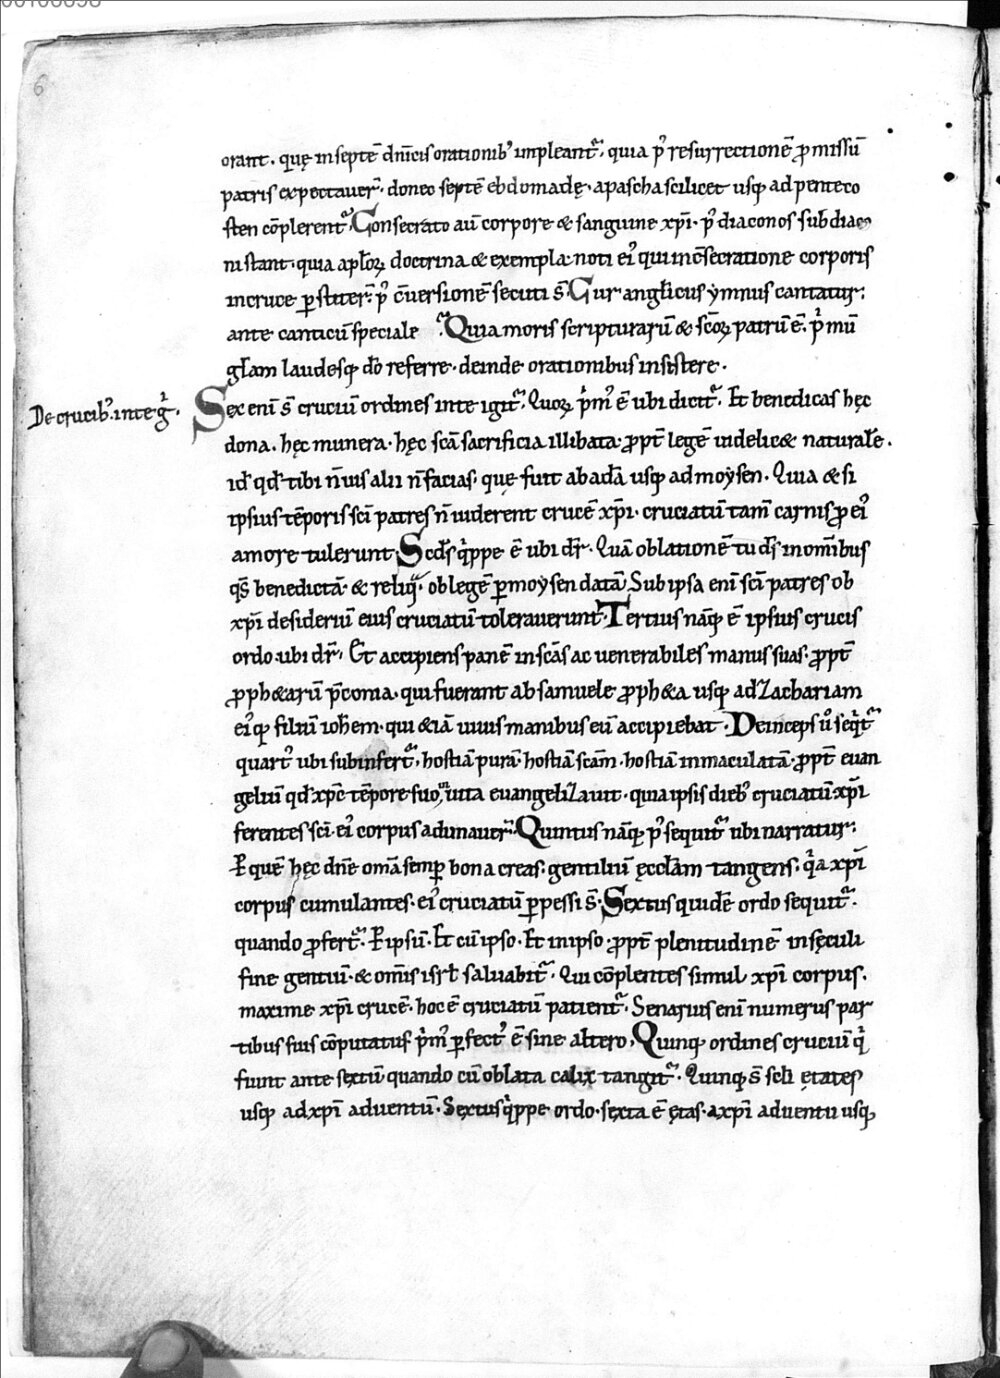 6
orant. quę in septē dn̄icis orationibꝰ impleant᷑. quia pꝰ resurrectionē ꝓmissū
patris expectauer̄. donec septē ebdomadę. a pascha scilicet usq; ad penteco
sten cōplerent᷑. Consecrato aū corpore & sanguine xp̄i. pꝰ diaconos subdiaco
ni stant. quia apłoꝝ doctrina & exempla noti eiꝰ qui in c̄secratione corporis
in cruce ꝑstiter̄. pꝰ c̄uersionē secuti s̄. Cur anglicus ymnus cantatur.
ante canticū speciale Quia moris scripturarū & sc̄oꝝ patrū ē. pͥmū
głam laudesq; dō referre. deinde orationibus insistere.
De crucibꝰ. inte igͥ.
Sex eni s̄ cruciū ordines inte igit᷑. Quoꝝ pͥmꝰ ē ubi dicit᷑. Et benedicas hęc
dona. hęc munera. hęc sc̄a sacrificia illibata. ꝓpt̄ legē uidelic& naturałe.
id̄ qd̄ tibi n̄ uis alii n̄ facias. quę fuit ab adā usq; ad moysen. Quia & si
ipsius tēporis sc̄i patres n̄ uiderent crucē xp̄i. cruciatū tam̄ carnis ꝓ eiꝰ
amore tulerunt. Scd̄s qͥppe ē ubi dr̄. Quā oblationē tu ds̄ in om̄ibus
qs̄ benedictā. & reliq̄. ob legē ꝑ moysen datā. Sub ipsa eni sc̄i patres ob
xp̄i desideriū eius cruciatū tolerauerunt. Tertius nāq; ē ipsius crucis
ordo. ubi dr̄. Et accipiens panē in sc̄as ac uenerabiles manus suas. ꝓpt̄
ꝓph&arū p̄conia. qui fuerant ab samuele ꝓph&a usq; ad Zachariam
eiꝰq; filiū ioh̄em. qui &iā uiuis manibus eū accipiebat. Deinceps ů seq̄t᷑
quartꝰ ubi subinfert᷑. hostiā purā. hostiā sc̄am. hostiā inmaculatā. ꝓpt̄ euan
geliū qd̄ xp̄c tēpore suo in uita euangelizauit. quia ipsis diebꝰ cruciatū xp̄i
ferentes sc̄i. eiꝰ corpus adunauer̄. Quintus nāq; pꝰ sequit᷑ ubi narratur.
P quē hęc dn̄e om̄a semꝑ bona creas. gentiliū ęccłam tangens. qͥa xp̄i
corpus cumulantes. eiꝰ cruciatū ꝑpessi s̄. Sextus quidē ordo sequit᷑.
quando ꝓfert᷑. P ipsū. Et cū ipso. Et in ipso. ꝓpt̄ plenitudinē in sęculi
fine gentiū. & om̄is isrł saluabit᷑. Qui cōplentes simul xp̄i corpus.
maxime xp̄i crucē. hoc ē cruciatū patient᷑. Senarius eni numerus par
tibus suis cōputatus pͥmꝰ ꝑfectꝰ ē sine altero. Quinq; ordines cruciū qͥ
fiunt ante sextū quando cū oblata calix tangit᷑. Quinq; s̄ scłi ętates
usq; ad xp̄i aduentū. Sextus qͥppe ordo. sexta ē ętas. a xp̄i aduentu usq;